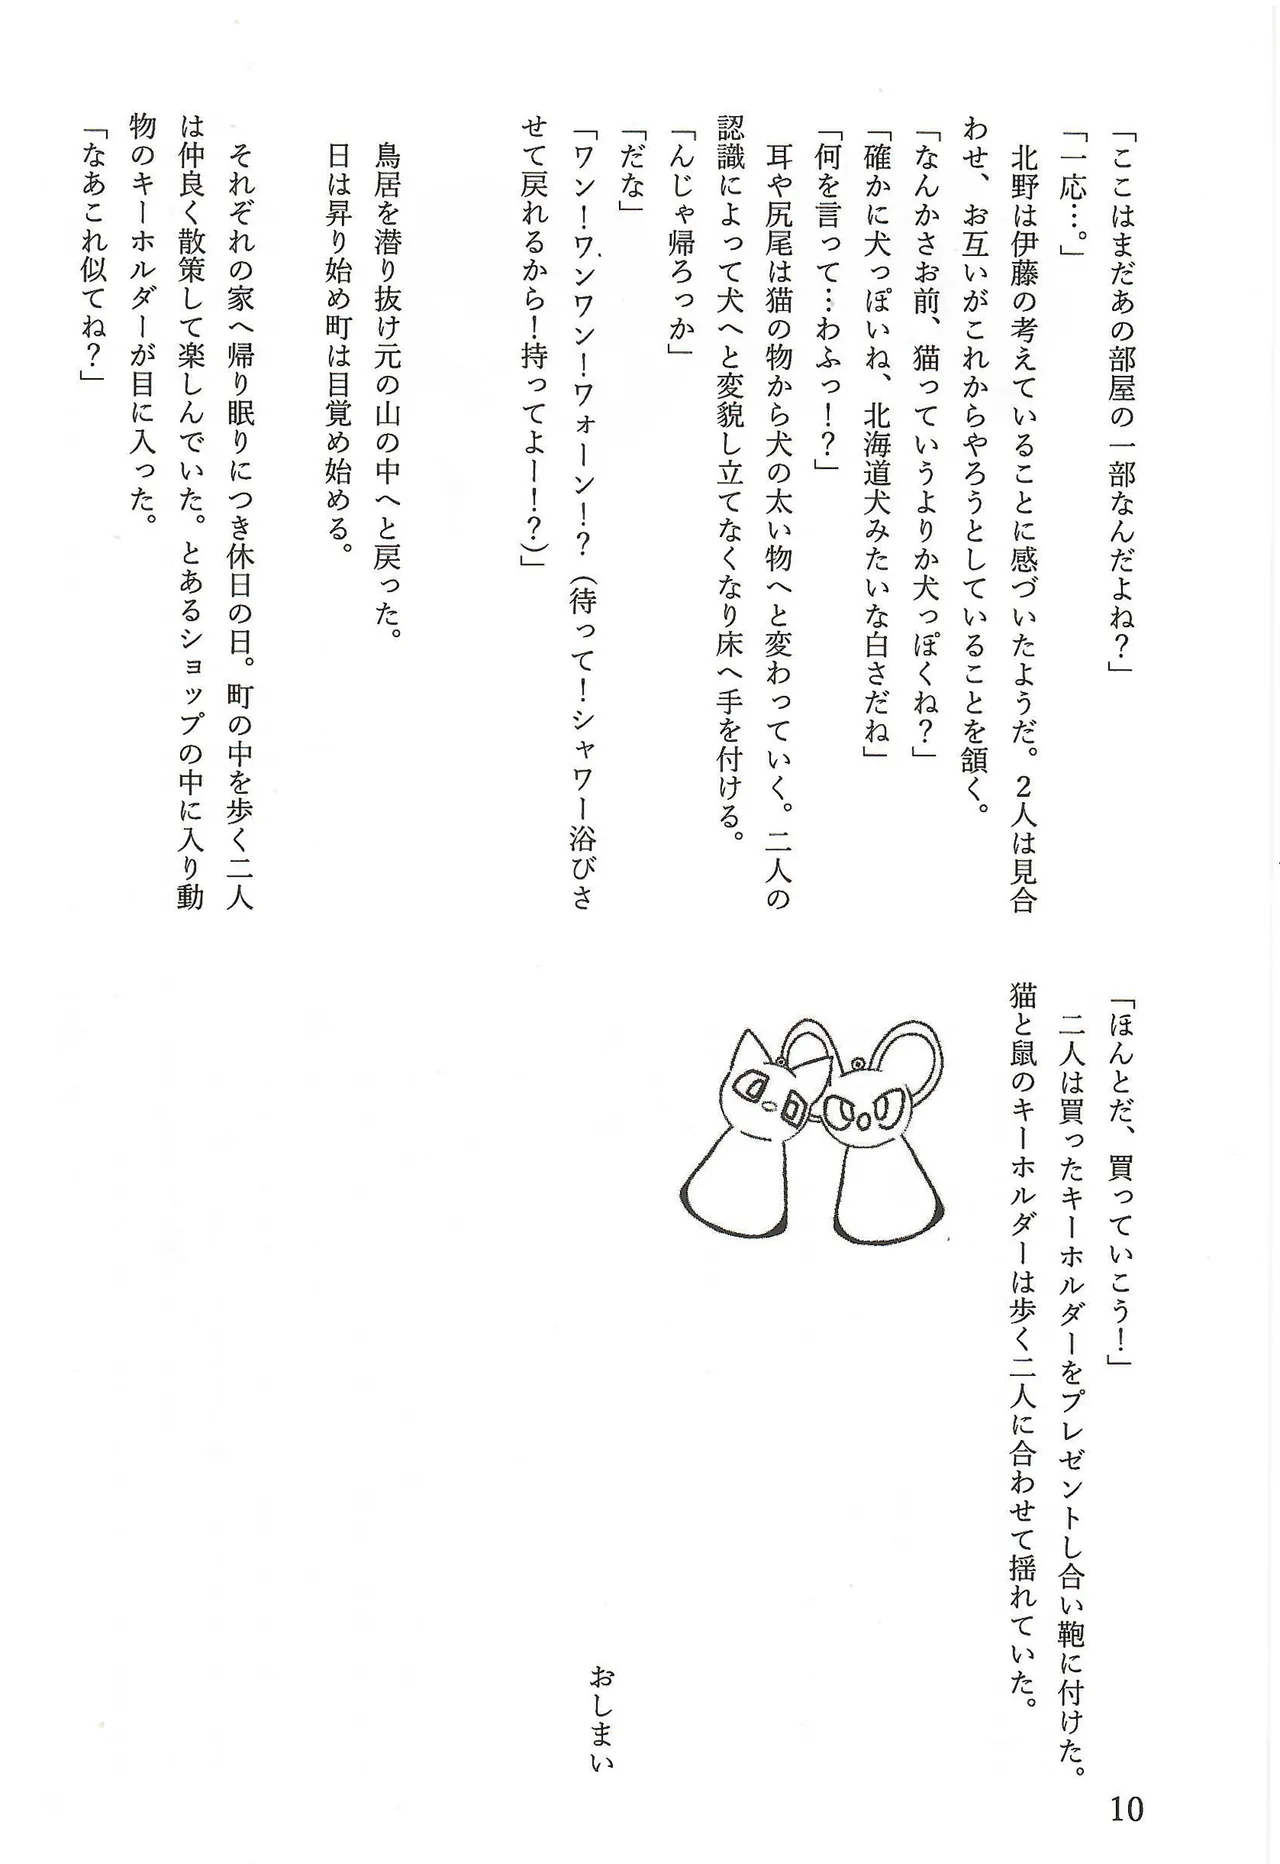 「ここはまだあの部屋の一部なんだよね？」
「一応…。」
　北野は伊藤の考えていることに感づいたようだ。２人は見合
わせ、お互いがこれからやろうとしていることを頷く。
「なんかさお前、猫っていうよりか犬っぽくね？」
「確かに犬っぽいね、北海道犬みたいな白さだね」
「何を言って…わふっ！？」
　耳や尻尾は猫の物から犬の太い物へと変わっていく。二人の
認識によって犬へと変貌し立てなくなり床へ手を付ける。
「んじゃ帰ろっか」
「だな」
「ワン！ワンワン！ワォーン！？（待って！シャワー浴びさ
せて戻れるから！持ってよー！？）」
　鳥居を潜り抜け元の山の中へと戻った。
　日は昇り始め町は目覚め始める。
　それぞれの家へ帰り眠りにつき休日の日。町の中を歩く二人
は仲良く散策して楽しんでいた。とあるショップの中に入り動
物のキーホルダーが目に入った。
「なあこれ似てね？」
「ほんとだ、買っていこう！」
　二人は買ったキーホルダーをプレゼントし合い鞄に付けた。
猫と鼠のキーホルダーは歩く二人に合わせて揺れていた。
おしまい
10